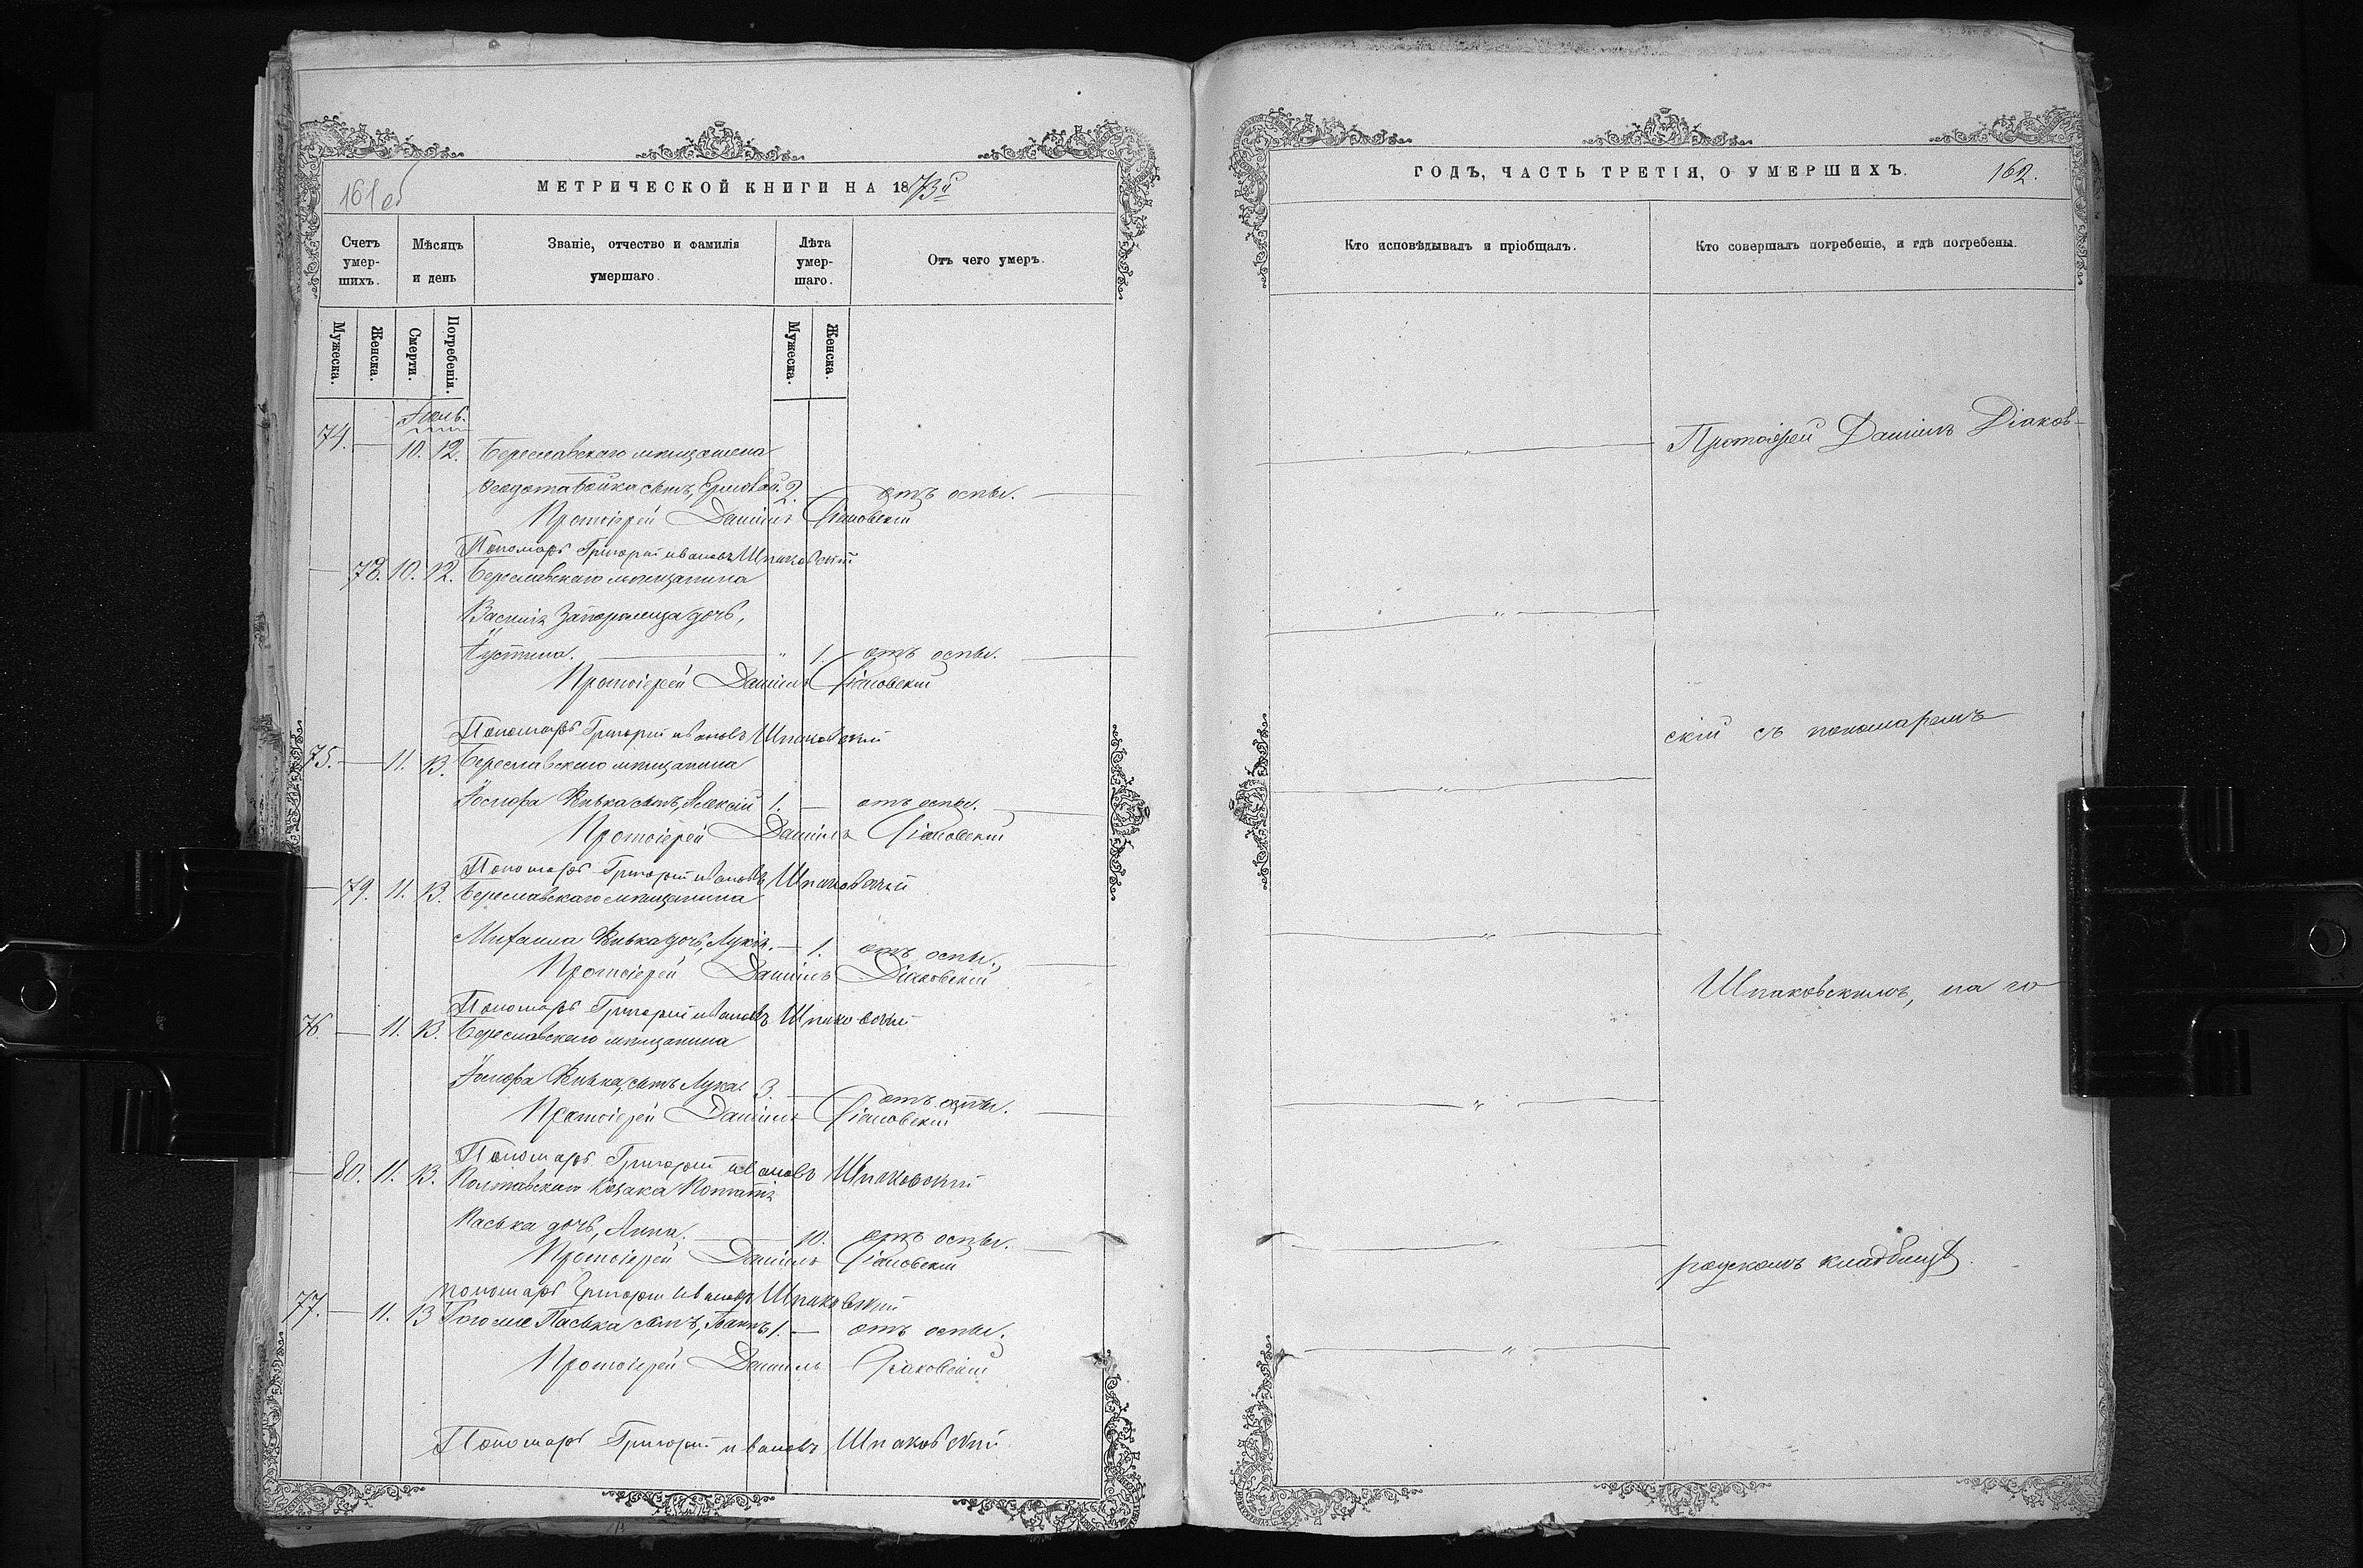 161 об
МЕТРИЧЕСКОЙ КНИГИ НА 1873й
Счетъ умер-шихъ.
Мѣсяцъ и день
Званіе, отчество и фамилія умершаго.
Лѣта умер-шаго.
Отъ чего умеръ.
Мужеска.
Женска.
Смерти.
Погребенія.
Мужеска.
Женска.
Іюль.
74. — 10. 12. Береславскаго мѣщанина
Ѳеодота Бойка сынъ, 2. отъ оспы.
Протоіерей Даніилъ Діаковскій
Пономарь Григорій Ивановъ Шпаковскій
— 78. 10. 12. Береславскаго мѣщанина
Василія Запорожца дочь,
Іустина. " 1. отъ оспы.
Протоіерей Даніилъ Діаковскій
Пономарь Григорій Ивановъ Шпаковскій
75. — 11. 13. Береславскаго мѣщанина
Іосифа Кивка сынъ, Алексій 1. — отъ оспы.
Протоіерей Даніилъ Діаковскій
Пономарь Григорій Ивановъ Шпаковскій
— 79. 11. 13. Береславскаго мѣщанина
Михаила Кивка дочь, — 1. отъ оспы.
Протоіерей Даніилъ Діаковскій
Пономарь Григорій Ивановъ Шпаковскій
76. — 11. 13. Береславскаго мѣщанина
Іосифа Кивка, сынъ Лука 3. — отъ оспы.
Протоіерей Даніилъ Діаковскій
Пономарь Григорій Ивановъ Шпаковскій
— 80. 11. 13. Полтавскаго козака
Паська дочь, Анна. — 10. отъ оспы.
Протоіерей Даніилъ Діаковскій
Пономарь Григорій Ивановъ Шпаковскій
77. — 11. 13 Того же Паська сынъ, 1. — отъ оспы.
Протоіерей Даніилъ Діаковскій
Пономарь Григорій Ивановъ Шпаковскій
ГОДЪ, ЧАСТЬ ТРЕТІЯ, О УМЕРШИХЪ.
162.
Кто исповѣдывалъ и пріобщалъ.
Кто совершалъ погребеніе, и гдѣ погребены.
Протоіерей Даніилъ Діаков-
скій съ пономаремъ
Шпаковскимъ, на го
родскомъ кладбищѣ.